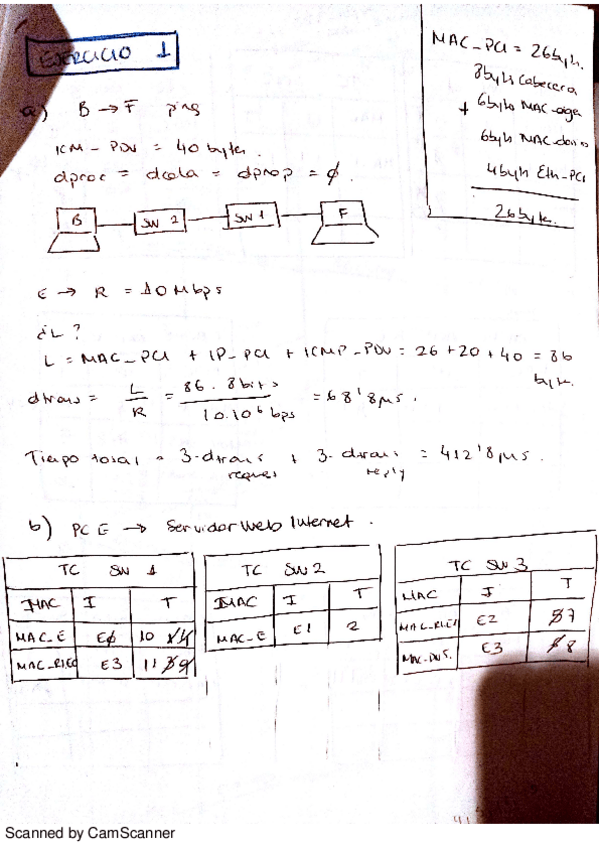 EJERCICIO 1
MAC_PCI = 26byt.
8byts cabecera
+ 6byts MAC_orige
6byts MAC_destino
4byts Eth_PCI
26byts.
a) B → F ping
ICM_PDU = 40 bytes.
dproc = dcola = dprop = ∅.
B SW 2 SW 1 F
E → R = 10 Mbps
¿L?
L = MAC_PCI + IP_PCI + ICMP_PDU = 26 + 20 + 40 = 86
byts.
dtrans = L/R = 86 · 8bits / 10·10⁶ bps = 68'8µs.
Tiempo total = 3·dtrans request + 3·dtrans reply = 412'8 µs.
b) PC E → Servidor Web Internet.
TC SW 1
MAC I T
MAC_E E∅ 10
E3 11
TC SW 2
MAC I T
MAC_E E1 2
TC SW 3
MAC I T
E2 7
E3 8
Scanned by CamScanner